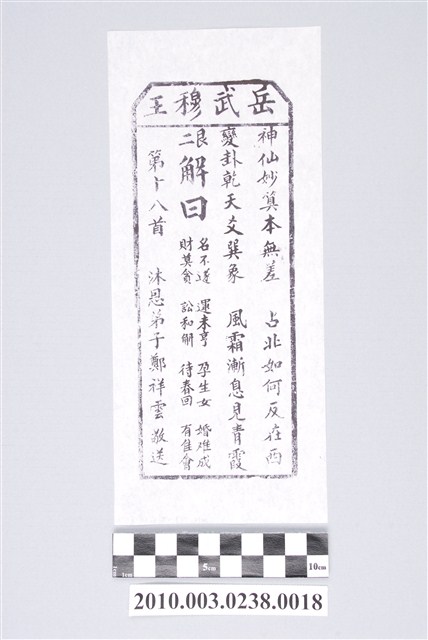 岳武穆王
神仙妙算本無差 占北如何反在西
變卦乾天爻巽象 風霜漸息見青霞
艮二
解曰
名不遂 運未亨 孕生女 婚难成
財莫貪 訟和解 待春回 有佳會
第十八首 沐恩弟子鄭祥雲敬送
1cm 5cm 10cm
2010.003.0238.0018